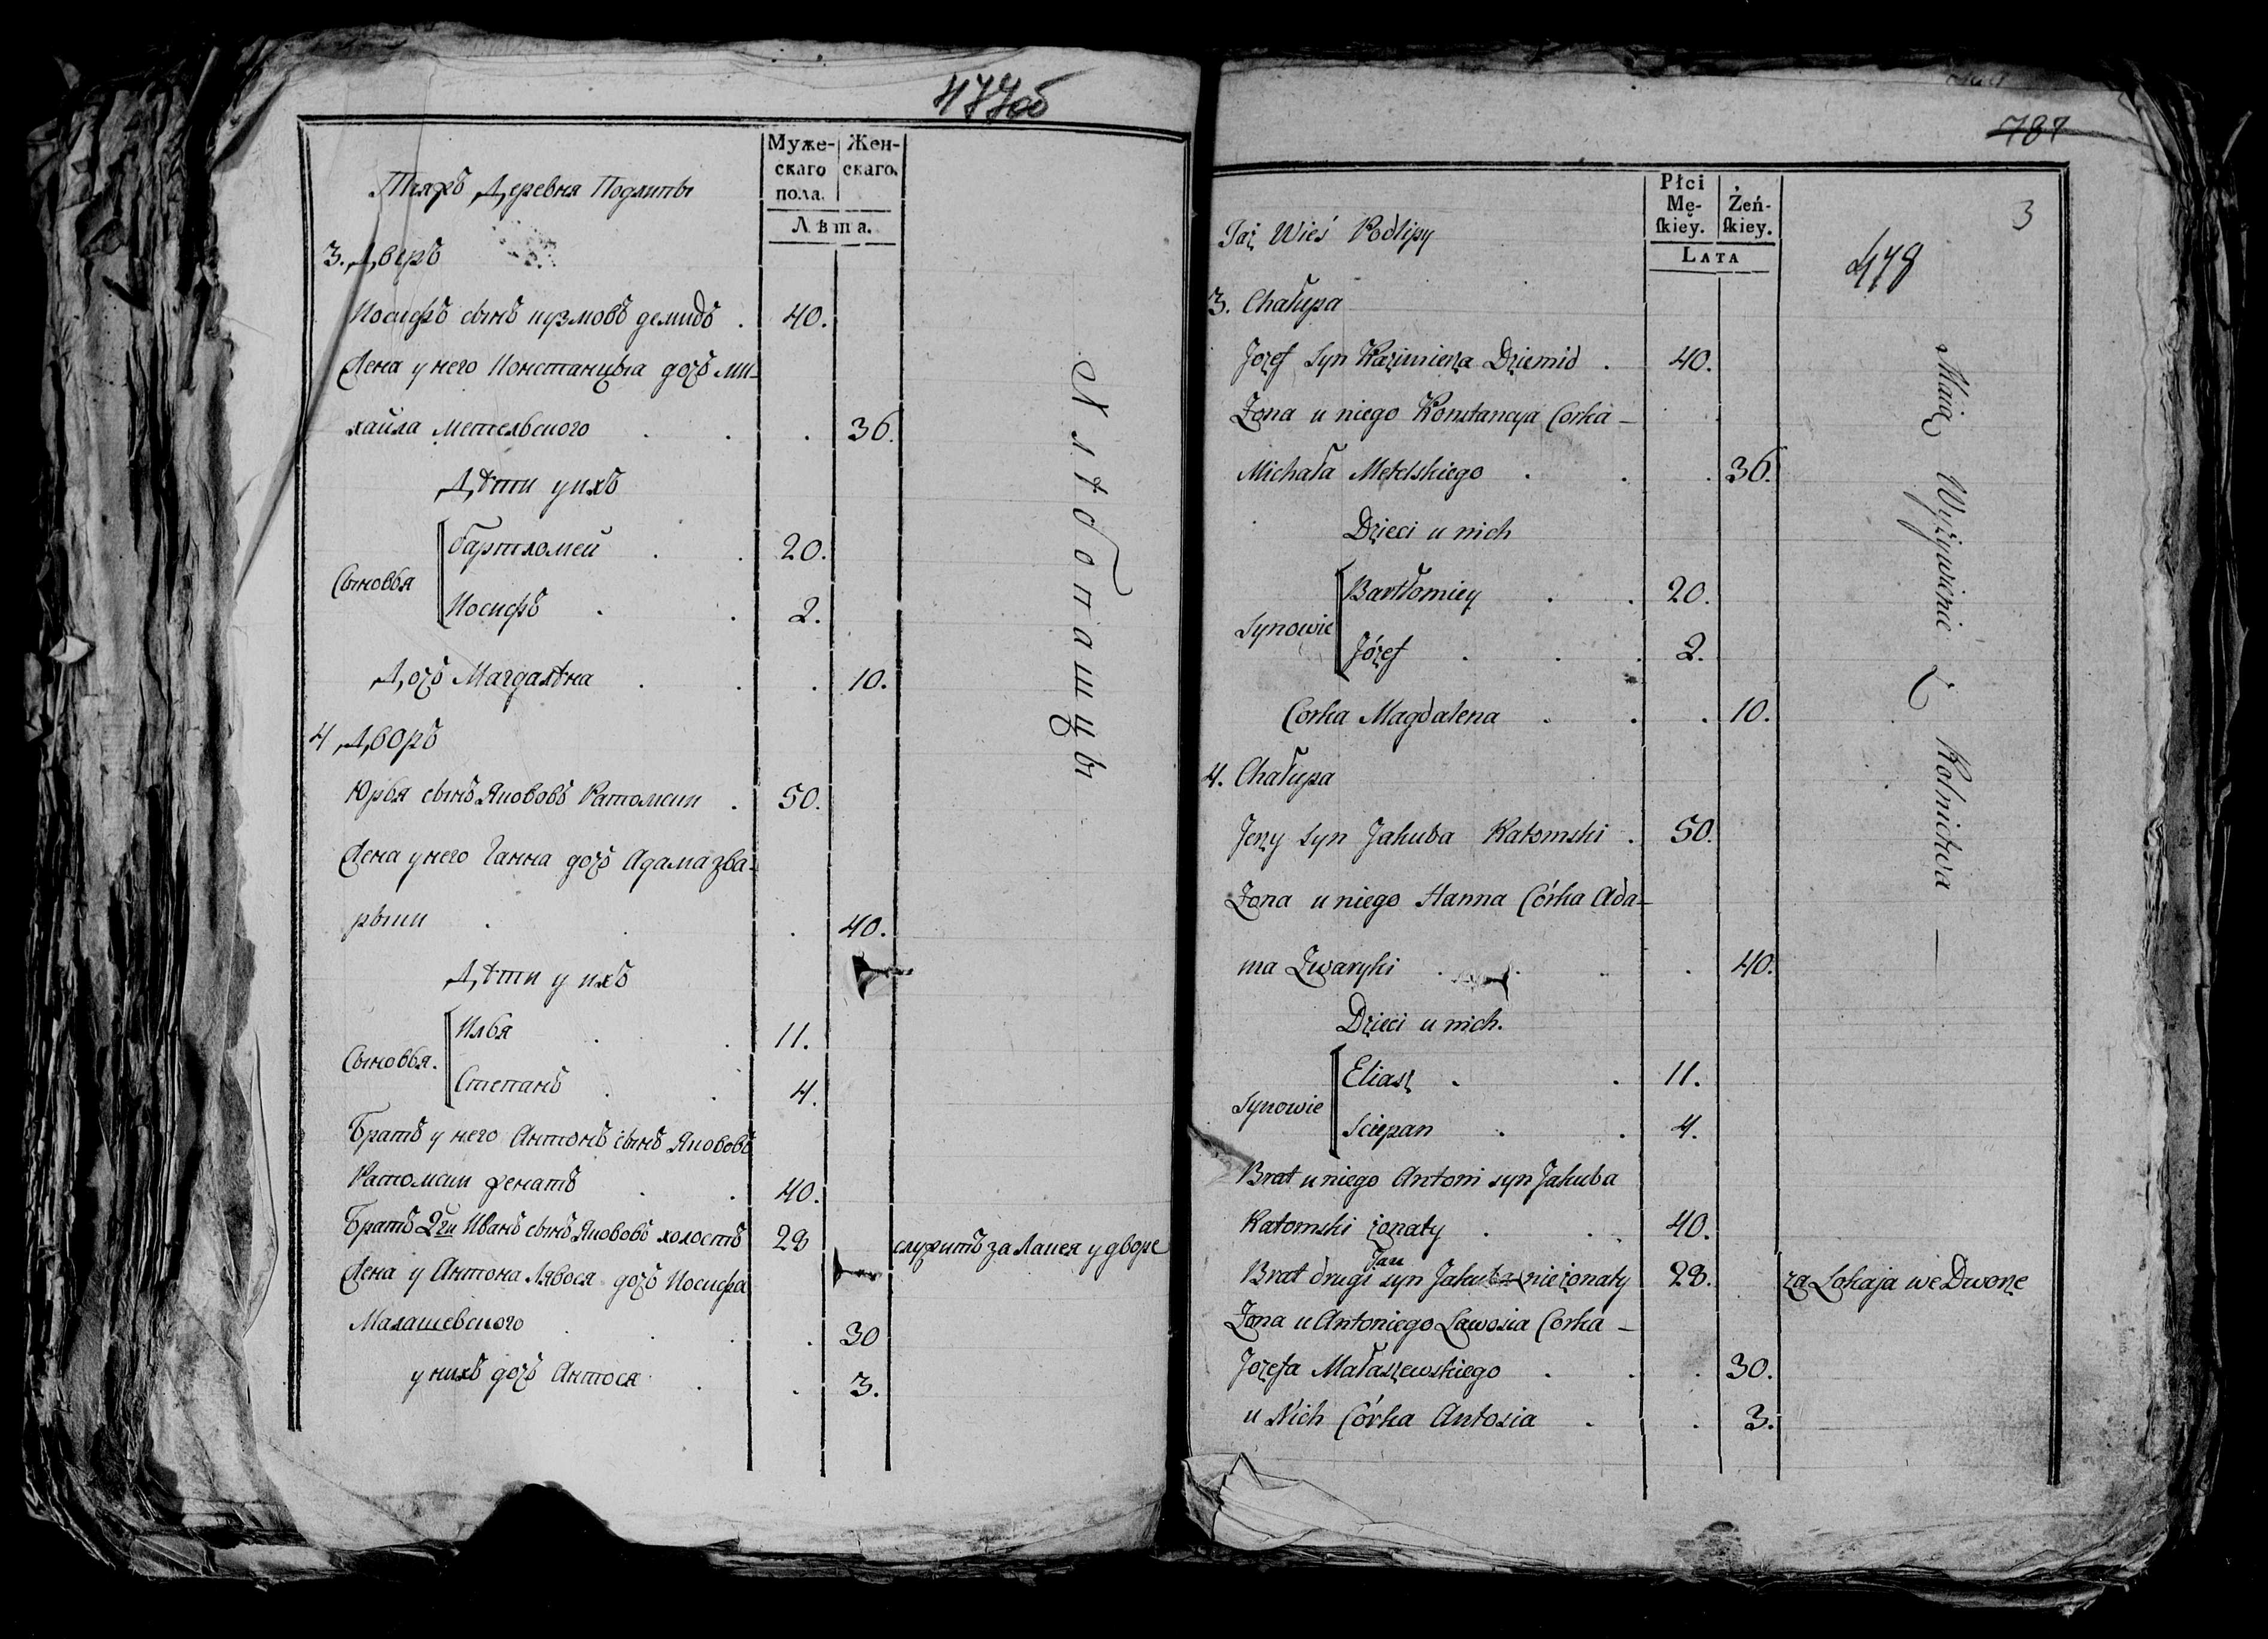 477об
Муже-
скаго
пола.
Жен-
скаго.
Лѣта.
Таяжъ Деревня Подлипы
3. Дворъ
Иосифъ сынъ кузмовъ демидъ . 40.
Жена у него Констанцыа дочъ ми-
хайла метельского . . . 36.
Дѣти у ихъ
Сыновья
бартломей . . 20.
Иосифъ . . 2.
Дочъ Магдалѣна . . . 10.
4 Дворъ
Юрья сынъ Якововъ Катомски . 50.
Жена у него Ганна дочъ Адама зва-
рыки . . . 40.
Дѣти у ихъ
Сыновья.
Илья . . 11.
Степанъ . . 4.
Братъ у него Антонъ сынъ Якововъ
Катомски женатъ . . 40.
Братъ 2ги Иванъ сынъ Якововъ холостъ 28 служитъ за Лакея у дворе
Жена у Антона Лявося дочъ Иосифа
Малашевского . . . 30
у нихъ дочъ Антося . . 3.
Хлѣбопашцы
787
3
478
Płci
Mę-
skiey.
Żeń-
skiey.
LATA
Taż Wieś Podlipy
3. Chałupa
Jozef Syn Kazimierza Dziemid . 40.
Żona u niego Konstancya Corka –
Michała Metelskiego . . . 36.
Dzieci u nich
Synowie
Bartłomiey . . 20.
Józef . . . 2.
Corka Magdalena . . . 10.
4. Chałupa
Jerzy syn Jakuba Katomski . 50.
Żona u niego Hanna Córka Ada–
ma Zwaryki . . . . 40.
Dzieci u nich.
Synowie
Eliasz . . 11.
Sciepan . . 4.
Brat u niego Antoni syn Jakuba
Katomski żonaty . . 40.
Jan
Brat drugi syn Jakuba nieżonaty 28. za Lokaja we Dworze
Żona u Antoniego Lawosia Corka –
Jozefa Małaszewskiego . . . 30.
u Nich Córka Antosia . . 3.
Maią Wyżywienie Z Rolnictwa —